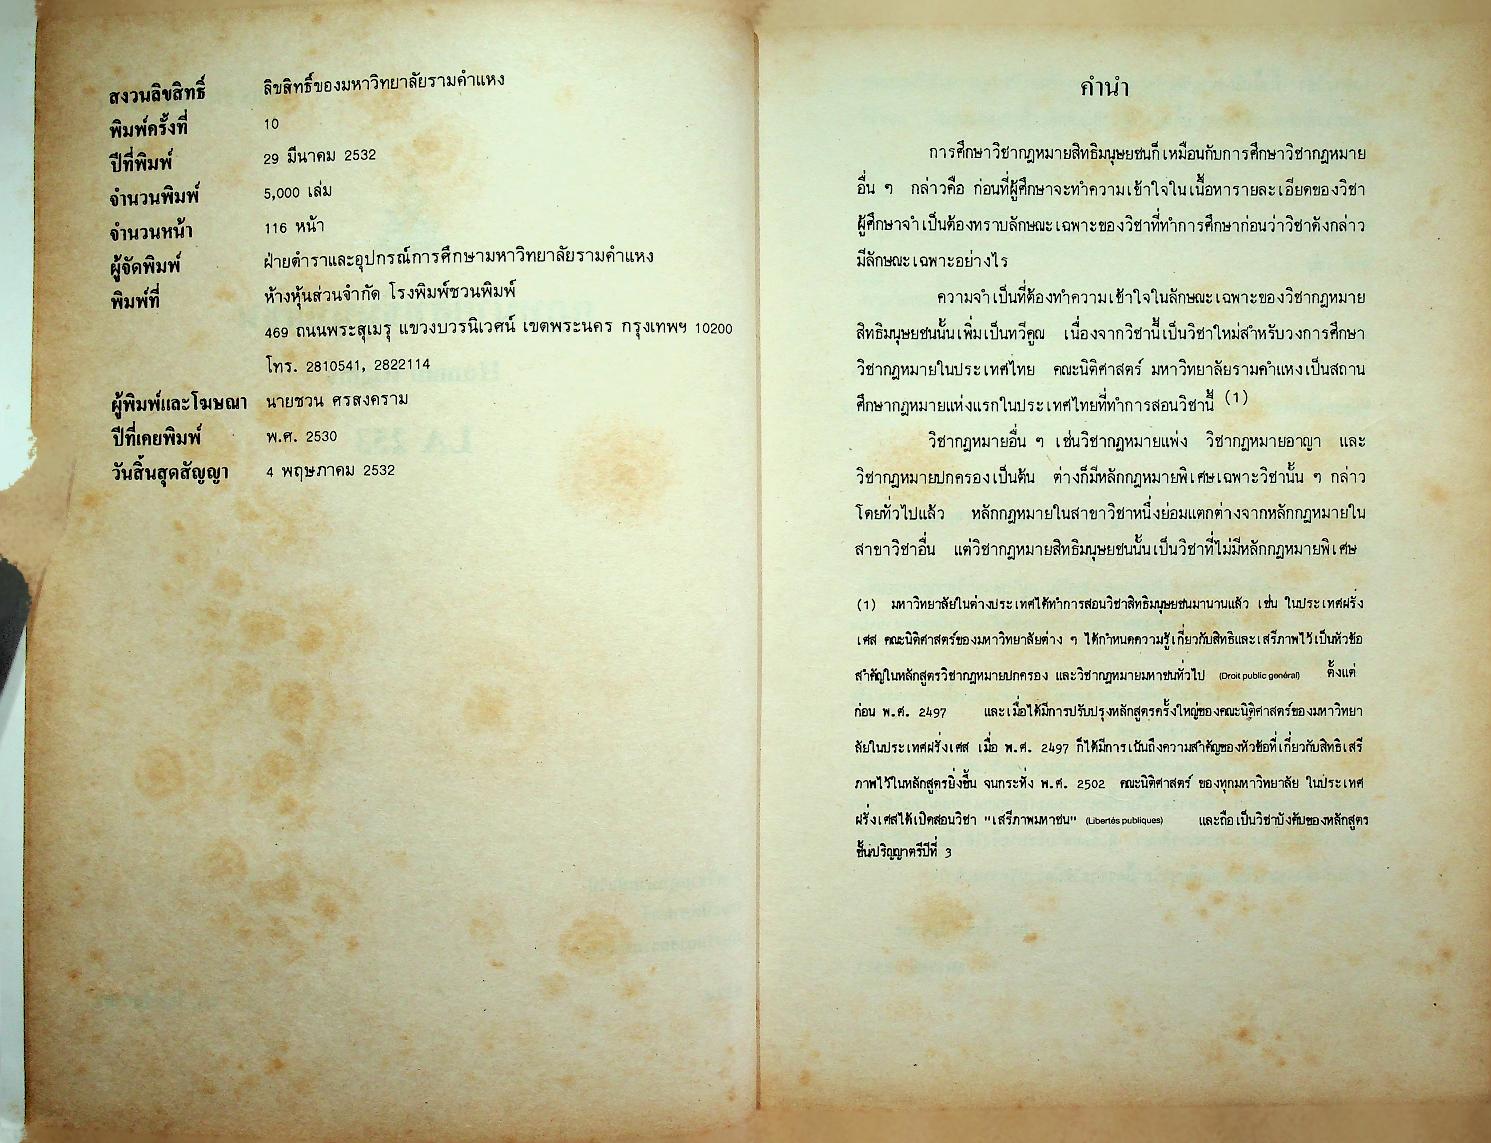 สงวนลิขสิทธิ์ ลิขสิทธิ์ของมหาวิทยาลัยรามคำแหง
พิมพ์ครั้งที่ 10
ปีที่พิมพ์ 29 มีนาคม 2532
จำนวนพิมพ์ 5,000 เล่ม
จำนวนหน้า 116 หน้า
ผู้จัดพิมพ์ ฝ่ายตำราและอุปกรณ์การศึกษามหาวิทยาลัยรามคำแหง
พิมพ์ที่ ห้างหุ้นส่วนจำกัด โรงพิมพ์ชวนพิมพ์
469 ถนนพระสุเมรุ แขวงบวรนิเวศน์ เขตพระนคร กรุงเทพฯ 10200
โทร. 2810541, 2822114
ผู้พิมพ์และโฆษณา นายชวน ศรสงคราม
ปีที่เคยพิมพ์ พ.ศ. 2530
วันสิ้นสุดสัญญา 4 พฤษภาคม 2532
คำนำ
การศึกษาวิชากฎหมายสิทธิมนุษยชนก็เหมือนกับการศึกษาวิชากฎหมาย
อื่น ๆ กล่าวคือ ก่อนที่ผู้ศึกษาจะทำความเข้าใจในเนื้อหารายละเอียดของวิชา
ผู้ศึกษาจำเป็นต้องทราบลักษณะเฉพาะของวิชาที่ทำการศึกษาก่อนว่าวิชาดังกล่าว
มีลักษณะเฉพาะอย่างไร
ความจำเป็นที่ต้องทำความเข้าใจในลักษณะเฉพาะของวิชากฎหมาย
สิทธิมนุษยชนนั้นเพิ่มเป็นทวีคูณ เนื่องจากวิชานี้เป็นวิชาใหม่สำหรับวงการศึกษา
วิชากฎหมายในประเทศไทย คณะนิติศาสตร์ มหาวิทยาลัยรามคำแหงเป็นสถาน
ศึกษากฎหมายแห่งแรกในประเทศไทยที่ทำการสอนวิชานี้ (1)
วิชากฎหมายอื่น ๆ เช่นวิชากฎหมายแพ่ง วิชากฎหมายอาญา และ
วิชากฎหมายปกครองเป็นต้น ต่างก็มีหลักกฎหมายพิเศษเฉพาะวิชานั้น ๆ กล่าว
โดยทั่วไปแล้ว หลักกฎหมายในสาขาวิชาหนึ่งย่อมแตกต่างจากหลักกฎหมายใน
สาขาวิชาอื่น แต่วิชากฎหมายสิทธิมนุษยชนนั้นเป็นวิชาที่ไม่มีหลักกฎหมายพิเศษ
(1) มหาวิทยาลัยในต่างประเทศได้ทำการสอนวิชาสิทธิมนุษยชนมานานแล้ว เช่น ในประเทศฝรั่ง
เศส คณะนิติศาสตร์ของมหาวิทยาลัยต่าง ๆ ได้กำหนดความรู้เกี่ยวกับสิทธิและเสรีภาพไว้เป็นหัวข้อ
สำคัญในหลักสูตรวิชากฎหมายปกครอง และวิชากฎหมายมหาชนทั่วไป (Droit public genéral) ตั้งแต่
ก่อน พ.ศ. 2497 และเมื่อได้มีการปรับปรุงหลักสูตรครั้งใหญ่ของคณะนิติศาสตร์ของมหาวิทยา
ลัยในประเทศฝรั่งเศส เมื่อ พ.ศ. 2497 ก็ได้มีการเน้นถึงความสำคัญของหัวข้อที่เกี่ยวกับสิทธิเสรี
ภาพไว้ในหลักสูตรยิ่งขึ้น จนกระทั่ง พ.ศ. 2502 คณะนิติศาสตร์ ของทุกมหาวิทยาลัย ในประเทศ
ฝรั่งเศสได้เปิดสอนวิชา "เสรีภาพมหาชน" (Libertés publiques) และถือเป็นวิชาบังคับของหลักสูตร
ชั้นปริญญาตรีปีที่ 3